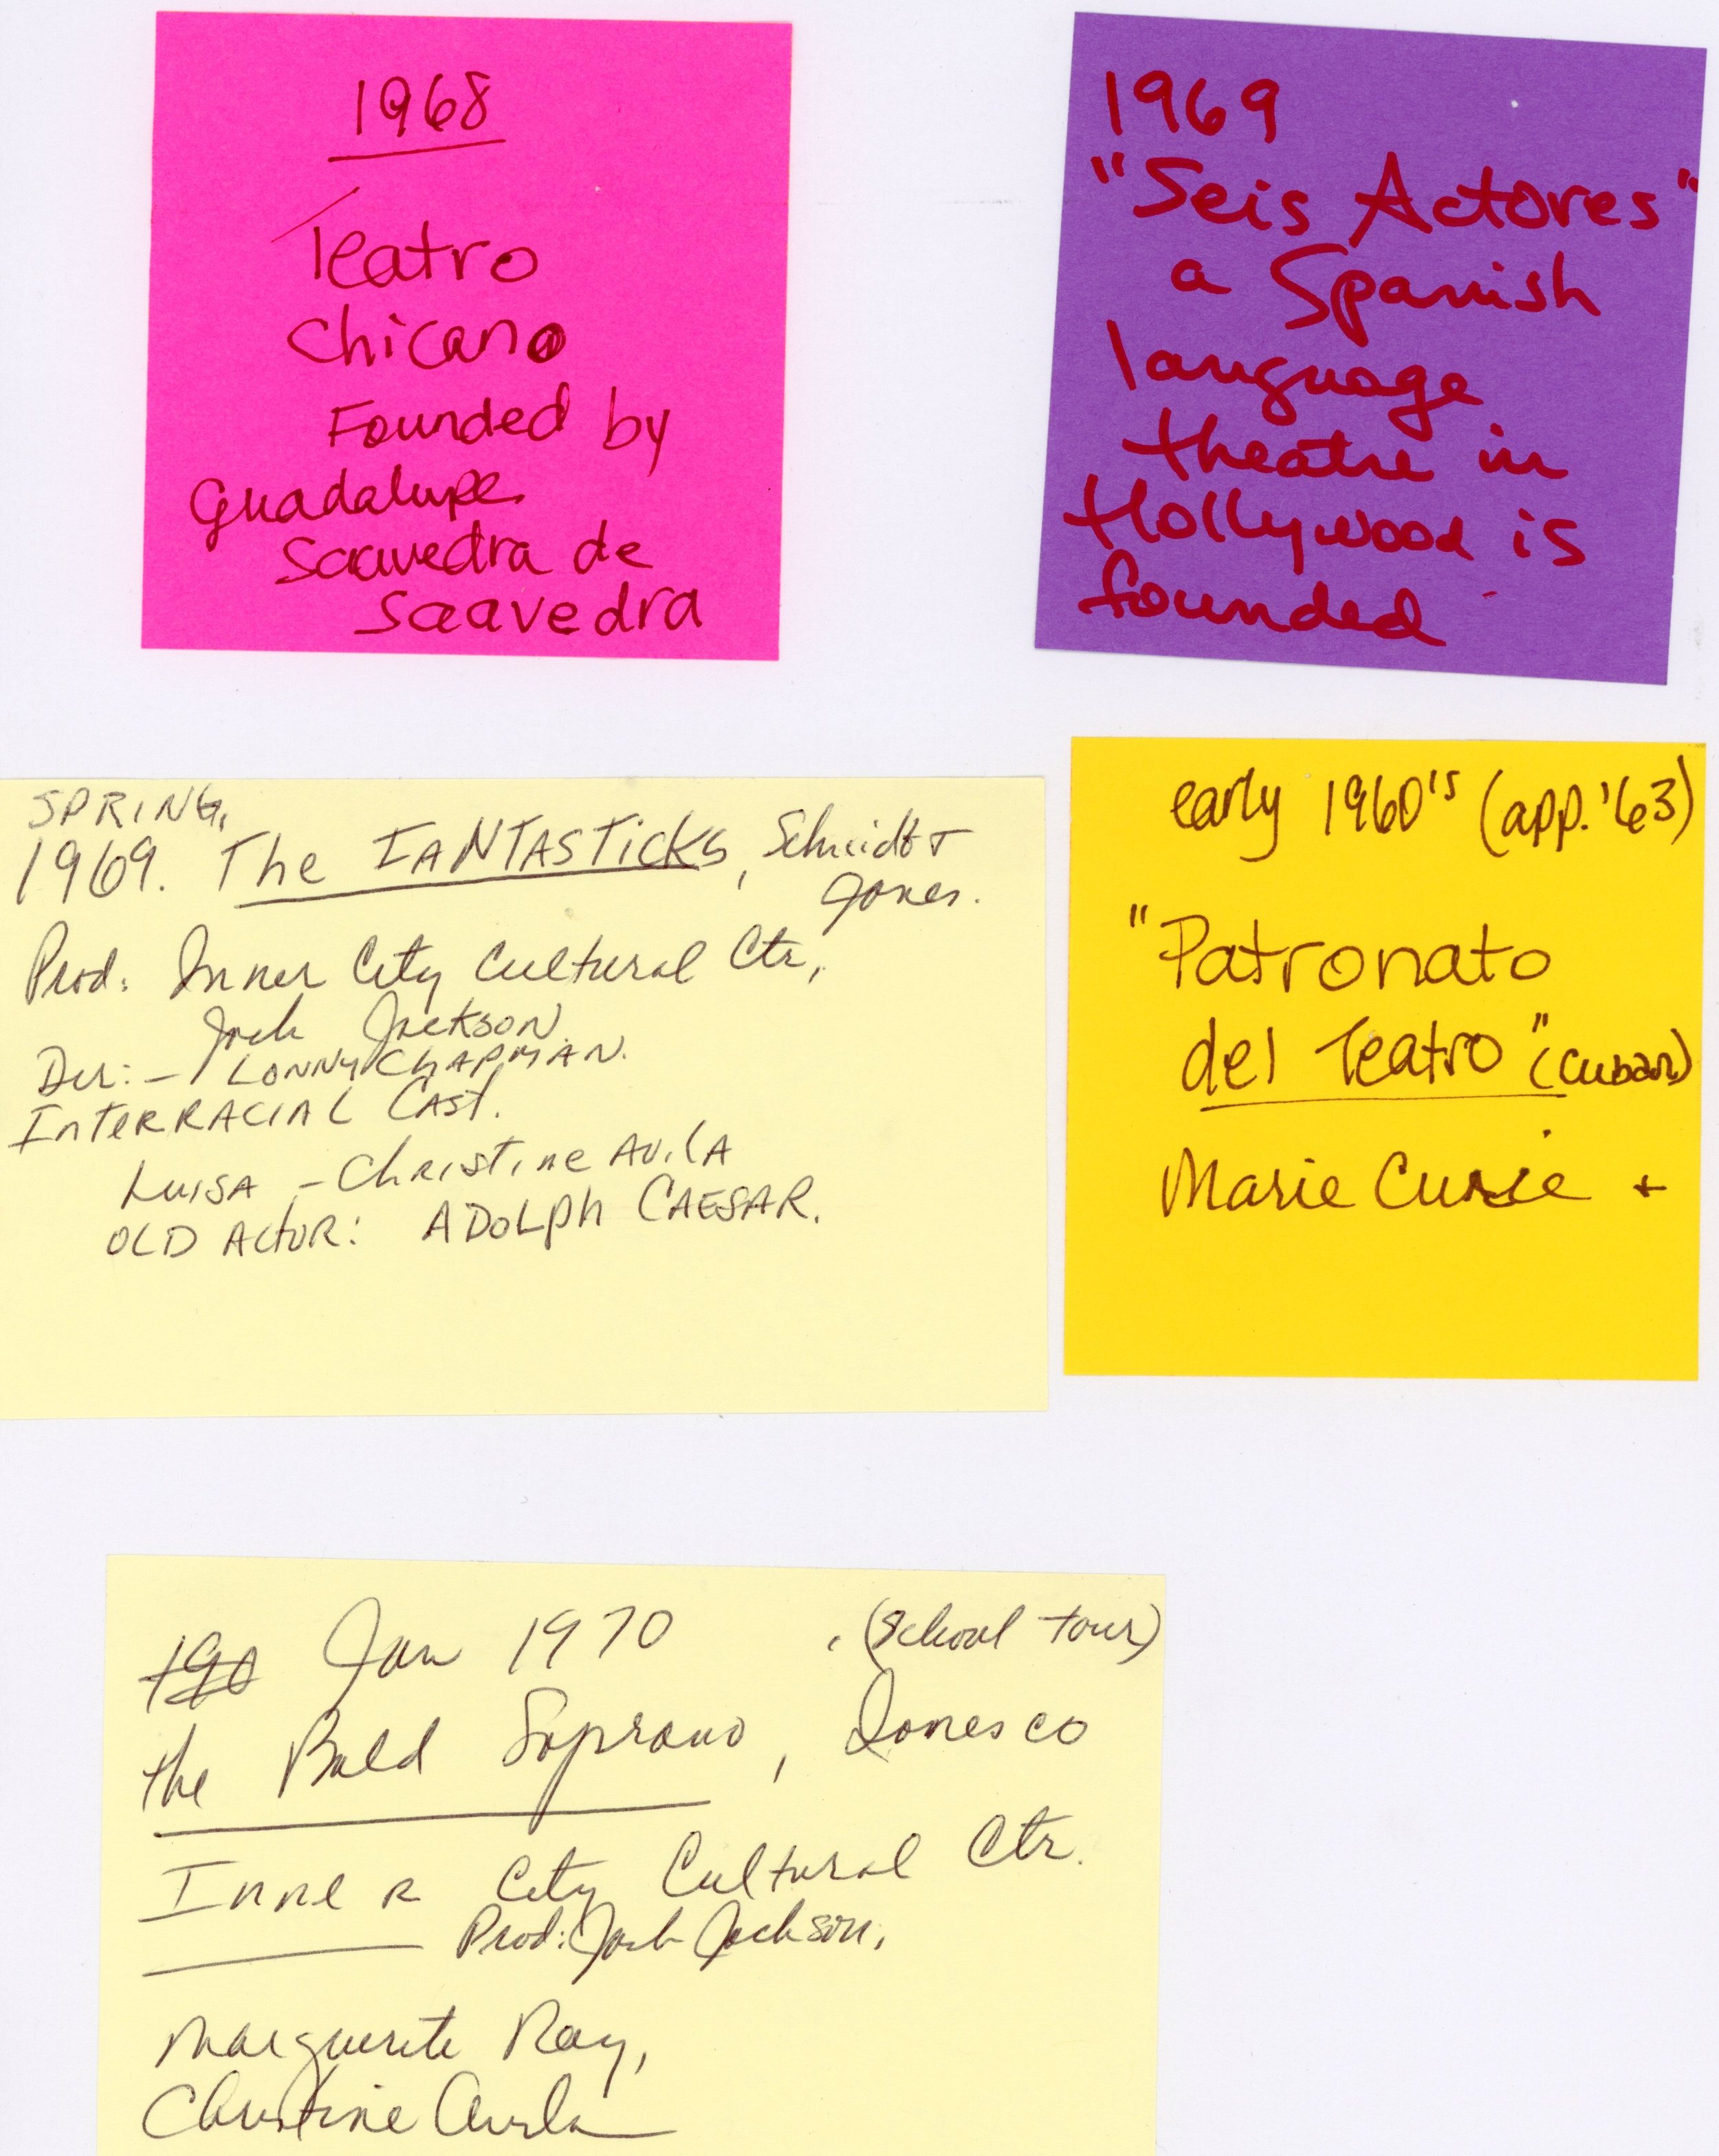 1968
Teatro
Chicano
Founded by
Guadalupe
Saavedra de
Saavedra
1969
"Seis Actores"
a Spanish
language
theatre in
Hollywood is
founded
SPRING,
1969. The FANTASTICKS, Schmidt +
Jones.
Prod: Inner City Cultural Ctr,
Jack Jackson
Dir: - LONNY CHAPMAN.
INTERRACIAL CAST.
LUISA - Christine AVILA
OLD ACTOR: ADOLPH CAESAR.
early 1960's (app. '63)
"Patronato
del Teatro" (Cuban)
Marie Curie +
Jan 1970 (School tour)
the Bald Soprano, Ionesco
Inner City Cultural Ctr.
Prod: Jack Jackson,
Marguerite Ray,
Christine Avila